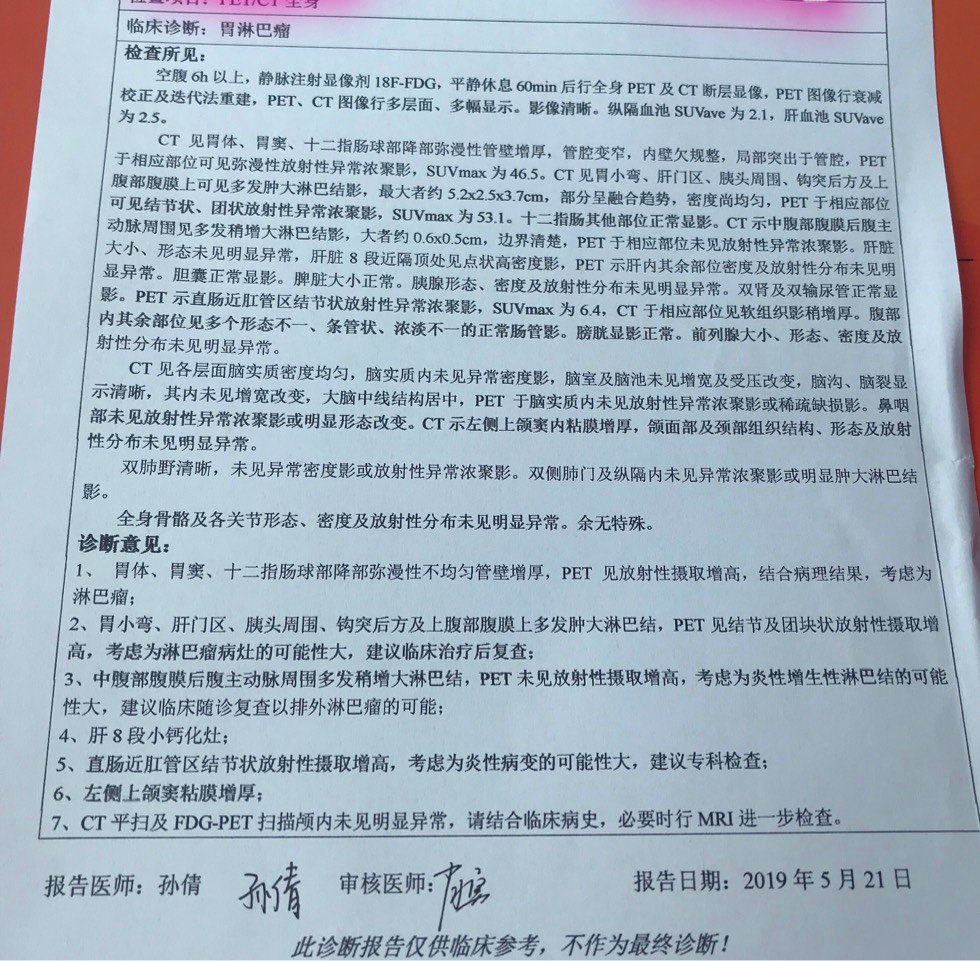 检查项目：PET/CT 全身
临床诊断：胃淋巴瘤
检查所见：
空腹 6h 以上，静脉注射显像剂 18F-FDG，平静休息 60min 后行全身 PET 及 CT 断层显像，PET 图像行衰减
校正及迭代法重建，PET、CT 图像行多层面、多幅显示。影像清晰。纵隔血池 SUVave 为 2.1，肝血池 SUVave
为 2.5。
CT 见胃体、胃窦、十二指肠球部降部弥漫性管壁增厚，管腔变窄，内壁欠规整，局部突出于管腔，PET
于相应部位可见弥漫性放射性异常浓聚影，SUVmax 为 46.5。CT 见胃小弯、肝门区、胰头周围、钩突后方及上
腹部腹膜上可见多发肿大淋巴结影，最大者约 5.2x2.5x3.7cm，部分呈融合趋势，密度尚均匀，PET 于相应部位
可见结节状、团状放射性异常浓聚影，SUVmax 为 53.1。十二指肠其他部位正常显影。CT 示中腹部腹膜后腹主
动脉周围见多发稍增大淋巴结影，大者约 0.6x0.5cm，边界清楚，PET 于相应部位未见放射性异常浓聚影。肝脏
大小、形态未见明显异常，肝脏 8 段近隔顶处见点状高密度影，PET 示肝内其余部位密度及放射性分布未见明
显异常。胆囊正常显影。脾脏大小正常。胰腺形态、密度及放射性分布未见明显异常。双肾及双输尿管正常显
影。PET 示直肠近肛管区结节状放射性异常浓聚影，SUVmax 为 6.4，CT 于相应部位见软组织影稍增厚。腹部
内其余部位见多个形态不一、条管状、浓淡不一的正常肠管影。膀胱显影正常。前列腺大小、形态、密度及放
射性分布未见明显异常。
CT 见各层面脑实质密度均匀，脑实质内未见异常密度影，脑室及脑池未见增宽及受压改变，脑沟、脑裂显
示清晰，其内未见增宽改变，大脑中线结构居中，PET 于脑实质内未见放射性异常浓聚影或稀疏缺损影。鼻咽
部未见放射性异常浓聚影或明显形态改变。CT 示左侧上颌窦内粘膜增厚，颌面部及颈部组织结构、形态及放射
性分布未见明显异常。
双肺野清晰，未见异常密度影或放射性异常浓聚影。双侧肺门及纵隔内未见异常浓聚影或明显肿大淋巴结
影。
全身骨骼及各关节形态、密度及放射性分布未见明显异常。余无特殊。
诊断意见：
1、 胃体、胃窦、十二指肠球部降部弥漫性不均匀管壁增厚，PET 见放射性摄取增高，结合病理结果，考虑为
淋巴瘤；
2、胃小弯、肝门区、胰头周围、钩突后方及上腹部腹膜上多发肿大淋巴结，PET 见结节及团块状放射性摄取增
高，考虑为淋巴瘤病灶的可能性大，建议临床治疗后复查；
3、中腹部腹膜后腹主动脉周围多发稍增大淋巴结，PET 未见放射性摄取增高，考虑为炎性增生性淋巴结的可能
性大，建议临床随诊复查以排外淋巴瘤的可能；
4、肝 8 段小钙化灶；
5、直肠近肛管区结节状放射性摄取增高，考虑为炎性病变的可能性大，建议专科检查；
6、左侧上颌窦粘膜增厚；
7、CT 平扫及 FDG-PET 扫描颅内未见明显异常，请结合临床病史，必要时行 MRI 进一步检查。
报告医师：孙倩 孙倩 审核医师： 报告日期：2019 年 5 月 21 日
此诊断报告仅供临床参考，不作为最终诊断！